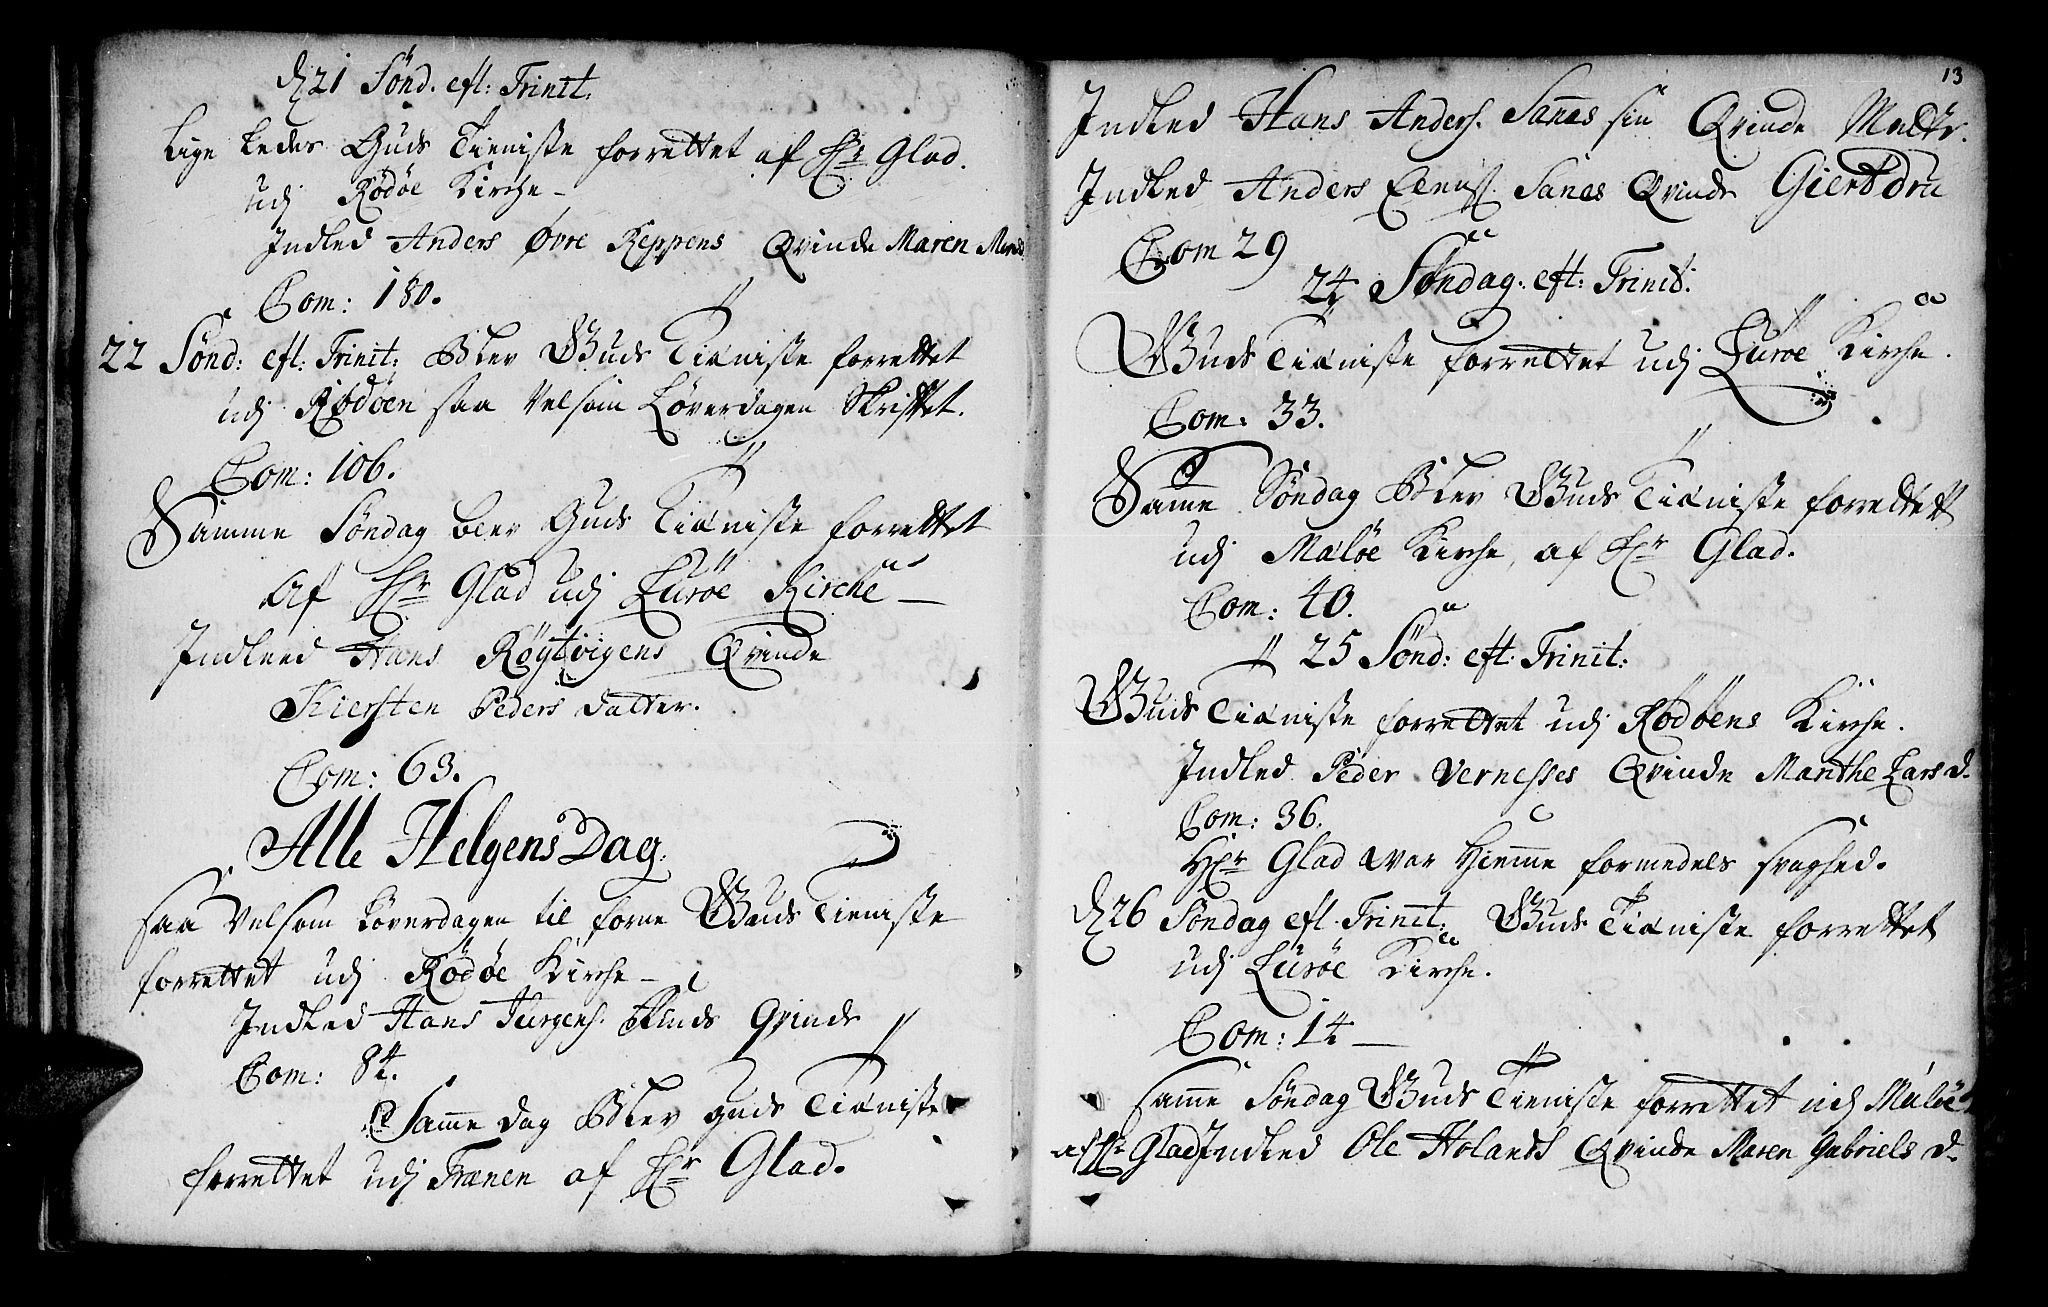 d 21 Sönd. eft: Trinit.
Lige Ledes Guds Tieniste forrettet af Hr Glad.
udj Rødøe Kirche -
Indled Anders Øvre Reppens Qvinde Maren
Com: 180.
22 Sönd: eft: Trinit: Blev Guds Tiæniste forrettet
udj Rødøen saa velsom Løverdagen Skriftet.
Com: 106.
Samme Söndag blev Guds Tiæniste forrettet
Af Hr Glad udj Lurøe Kirche -
Indleed Hans Røytvigens Qvinde
Kiersten Peders datter.
Com: 63.
Alle Helgens Dag.
saa velsom Löverdagen til forne Guds Tieniste
forrettet udj Rødøe Kirche -
Indled Hans Jurgens. Qvinde
Com: 84.
Samme dag Blev guds Tiæniste
forrettet udj Trænen af Hr Glad.
13
Indled Hans Anders. Sanes sin Qvinde
Indled Anders Sanes Qvinde Giertdru
Com 29
24 Söndag: eft: Trinit:
Guds Tiæniste forrettet udj Lurøe Kirche.
Com: 33.
Samme Söndag Blev Guds Tiæniste forrettet
udj Mæløe Kirche, af Hr Glad.
Com: 40.
25 Sönd: eft: Trinit:
Guds Tiæniste forrettet udj Rødøens Kirche.
Indled Peder Vernesses Qvinde Marithe Lars d-
Com: 36.
Hr Glad war Hiemme formedels svaghed.
d 26 Söndag eft. Trinit: Guds Tiæniste forrettet
udj Lurøe Kirche.
Com: 14 -
samme Söndag Guds Tieniste forrettet udj Mæløe
af Hr Glad Indled Ole Holands Qvinde Maren Gabriels d-